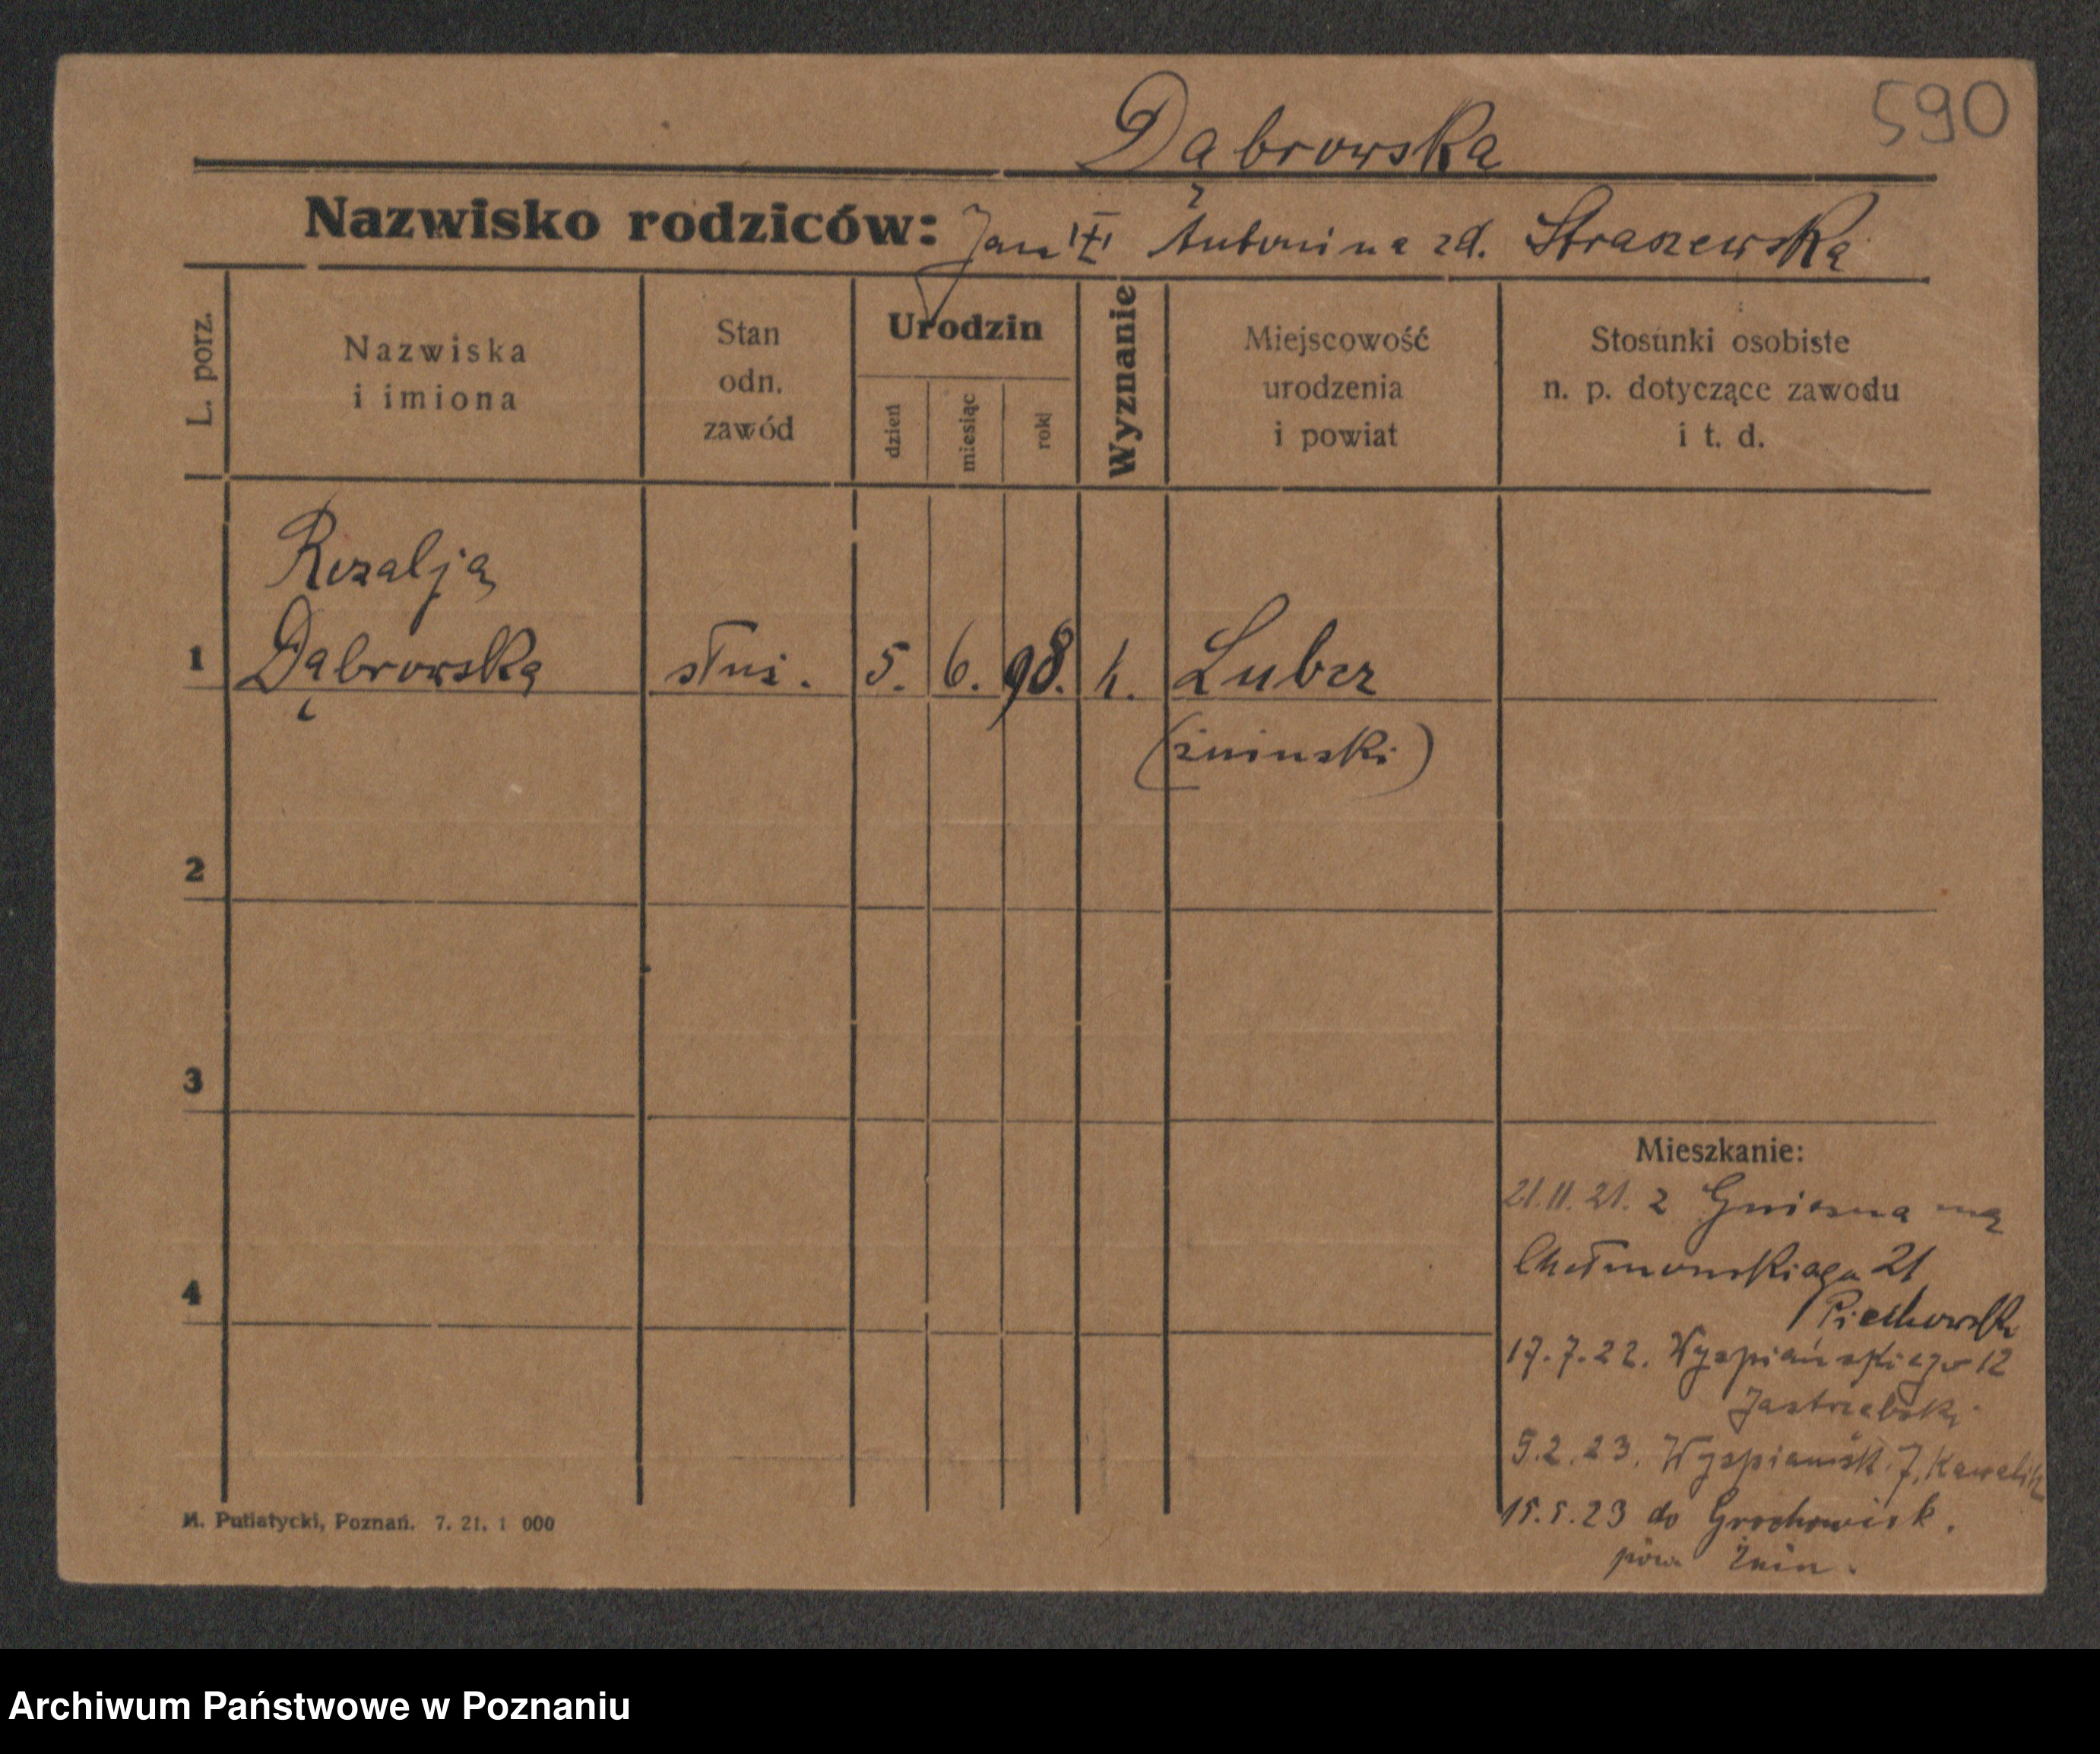 590
Dąbrowska
Nazwisko rodziców: Jan Antonina zd. Straszewska
L. porz.
Nazwiska
i imiona
Stan
odn.
zawód
Urodzin
dzień
miesiąc
rok
Wyznanie
Miejscowość
urodzenia
i powiat
Stosunki osobiste
n. p. dotyczące zawodu
i t. d.
Rozalja
1 Dąbrowska służ. 5. 6. 98. k. Lubcz
(żniński)
2
3
4
Mieszkanie:
21.11.21. z Gniezna na
Chełmońskiego 21
Piechowski
17.7.22. Wyspiańskiego 12
Jastrzębski
5.2.23. Wyspiańsk. 7,
15.5.23 do Grochowisk.
pow. Żnin.
M. Putiatycki, Poznań. 7. 21. 1 000
Archiwum Państwowe w Poznaniu